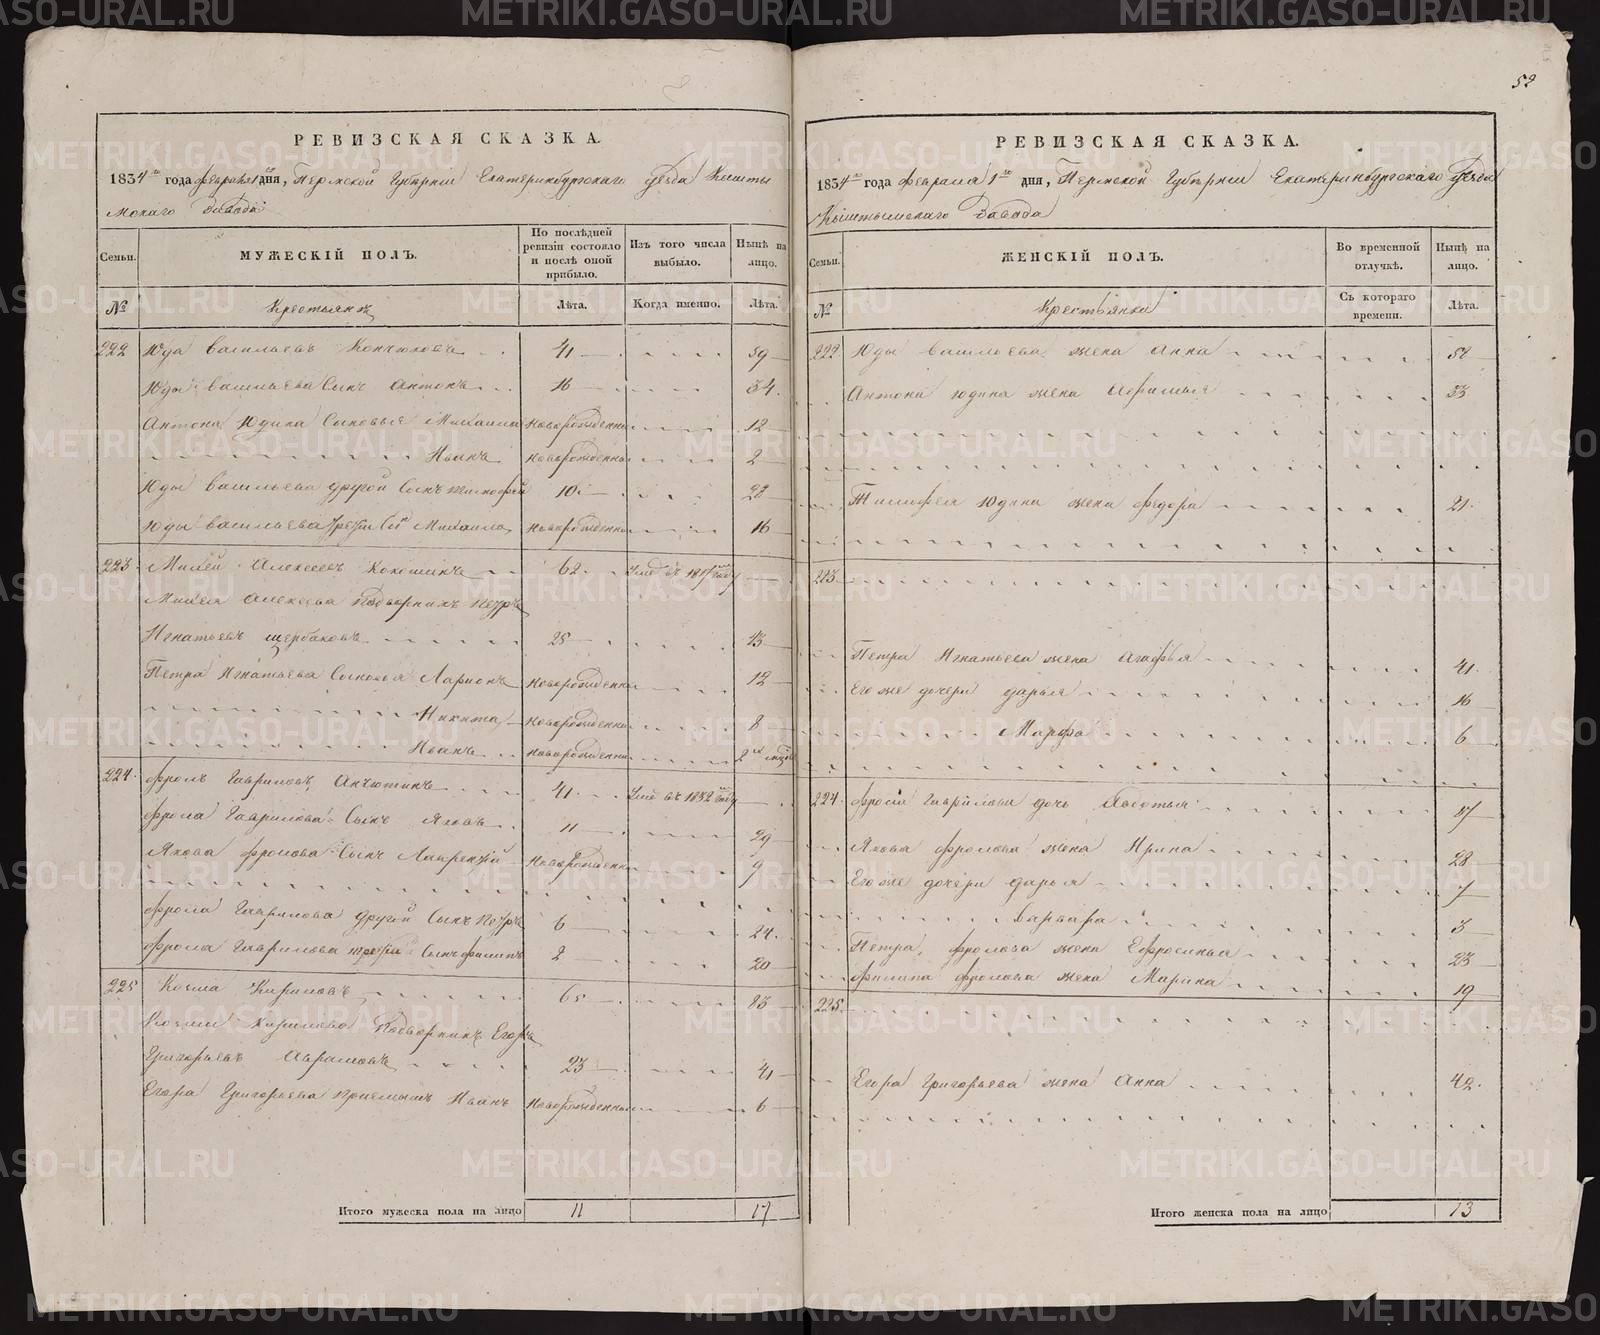 52
РЕВИЗСКАЯ СКАЗКА.
1834го года февраля 1го дня, Пермской Губернiи Екатеринбургскаго уезда Кышты
мскаго Завода
Семьи.
МУЖЕСКIЙ ПОЛЪ.
По послѣдней ревизiи состояло и послѣ оной прибыло.
Изъ того числа выбыло.
Нынѣ на лицо.
№
Крестьянъ
Лѣта.
Когда именно.
Лѣта.
222 Юда Васильевъ 41 59
Юды Васильева Сынъ Антонъ 16 34
Антона Юдина Сыновья Михаила Новорожденны 12
Иванъ Новорожденны 2
Юды Васильева другой Сынъ Тимофей 10 28
Юды Васильева Третiй Сынъ Михаила Новорожденны 16
223 Алексеевъ 62 Умре въ 1817 году
Алексеева Подворникъ Петръ
Игнатьевъ Щербаковъ 25 43
Петра Игнатьева Сыновья Ларионъ Новорожденны 12
Никита Новорожденны 8
Иванъ Новорожденны 2
224 Фролъ Гавриловъ Анчютинъ 41 Умре въ 1832 году
Фрола Гаврилова Сынъ Яковъ 11 29
Якова Фролова Сынъ Лаврентiй Новорожденны 9
Фрола Гаврилова другой Сынъ Петръ 6 24
Фрола Гаврилова третiй Сынъ Филипъ 2 20
225 Козма Кириловъ 65 83
Козмы Кирилова Подворникъ Егоръ
Григорьевъ Аврамовъ 23 41
Егора Григорьева приемышъ Иванъ Новорожденны 6
Итого мужеска пола на лицо 11 17
РЕВИЗСКАЯ СКАЗКА.
1834го года Февраля 1го дня, Пермской Губернiи Екатеринбургскаго уезда
Кыштымскаго Завода
Семьи.
ЖЕНСКIЙ ПОЛЪ.
Во временной отлучкѣ.
Нынѣ на лицо.
№
Крестьянка
Съ котораго времени.
Лѣта.
222 Юды Васильева жена Анна 52
Антона Юдина жена Афимья 33
Тимофея Юдина жена Федора 21
223
Петра Игнатьева жена Агафья 41
Его же дочери Дарья 16
Марфа 6
224 Фрола Гаврилова дочь 17
Якова Фролова жена Ирина 28
Его же дочери Дарья 7
Варвара 3
Петра Фролова жена Ефросинья 23
Филипа Фролова жена Марина 19
225
Егора Григорьева жена Анна 42
Итого женска пола на лицо 13
METRIKI.GASO-URAL.RU